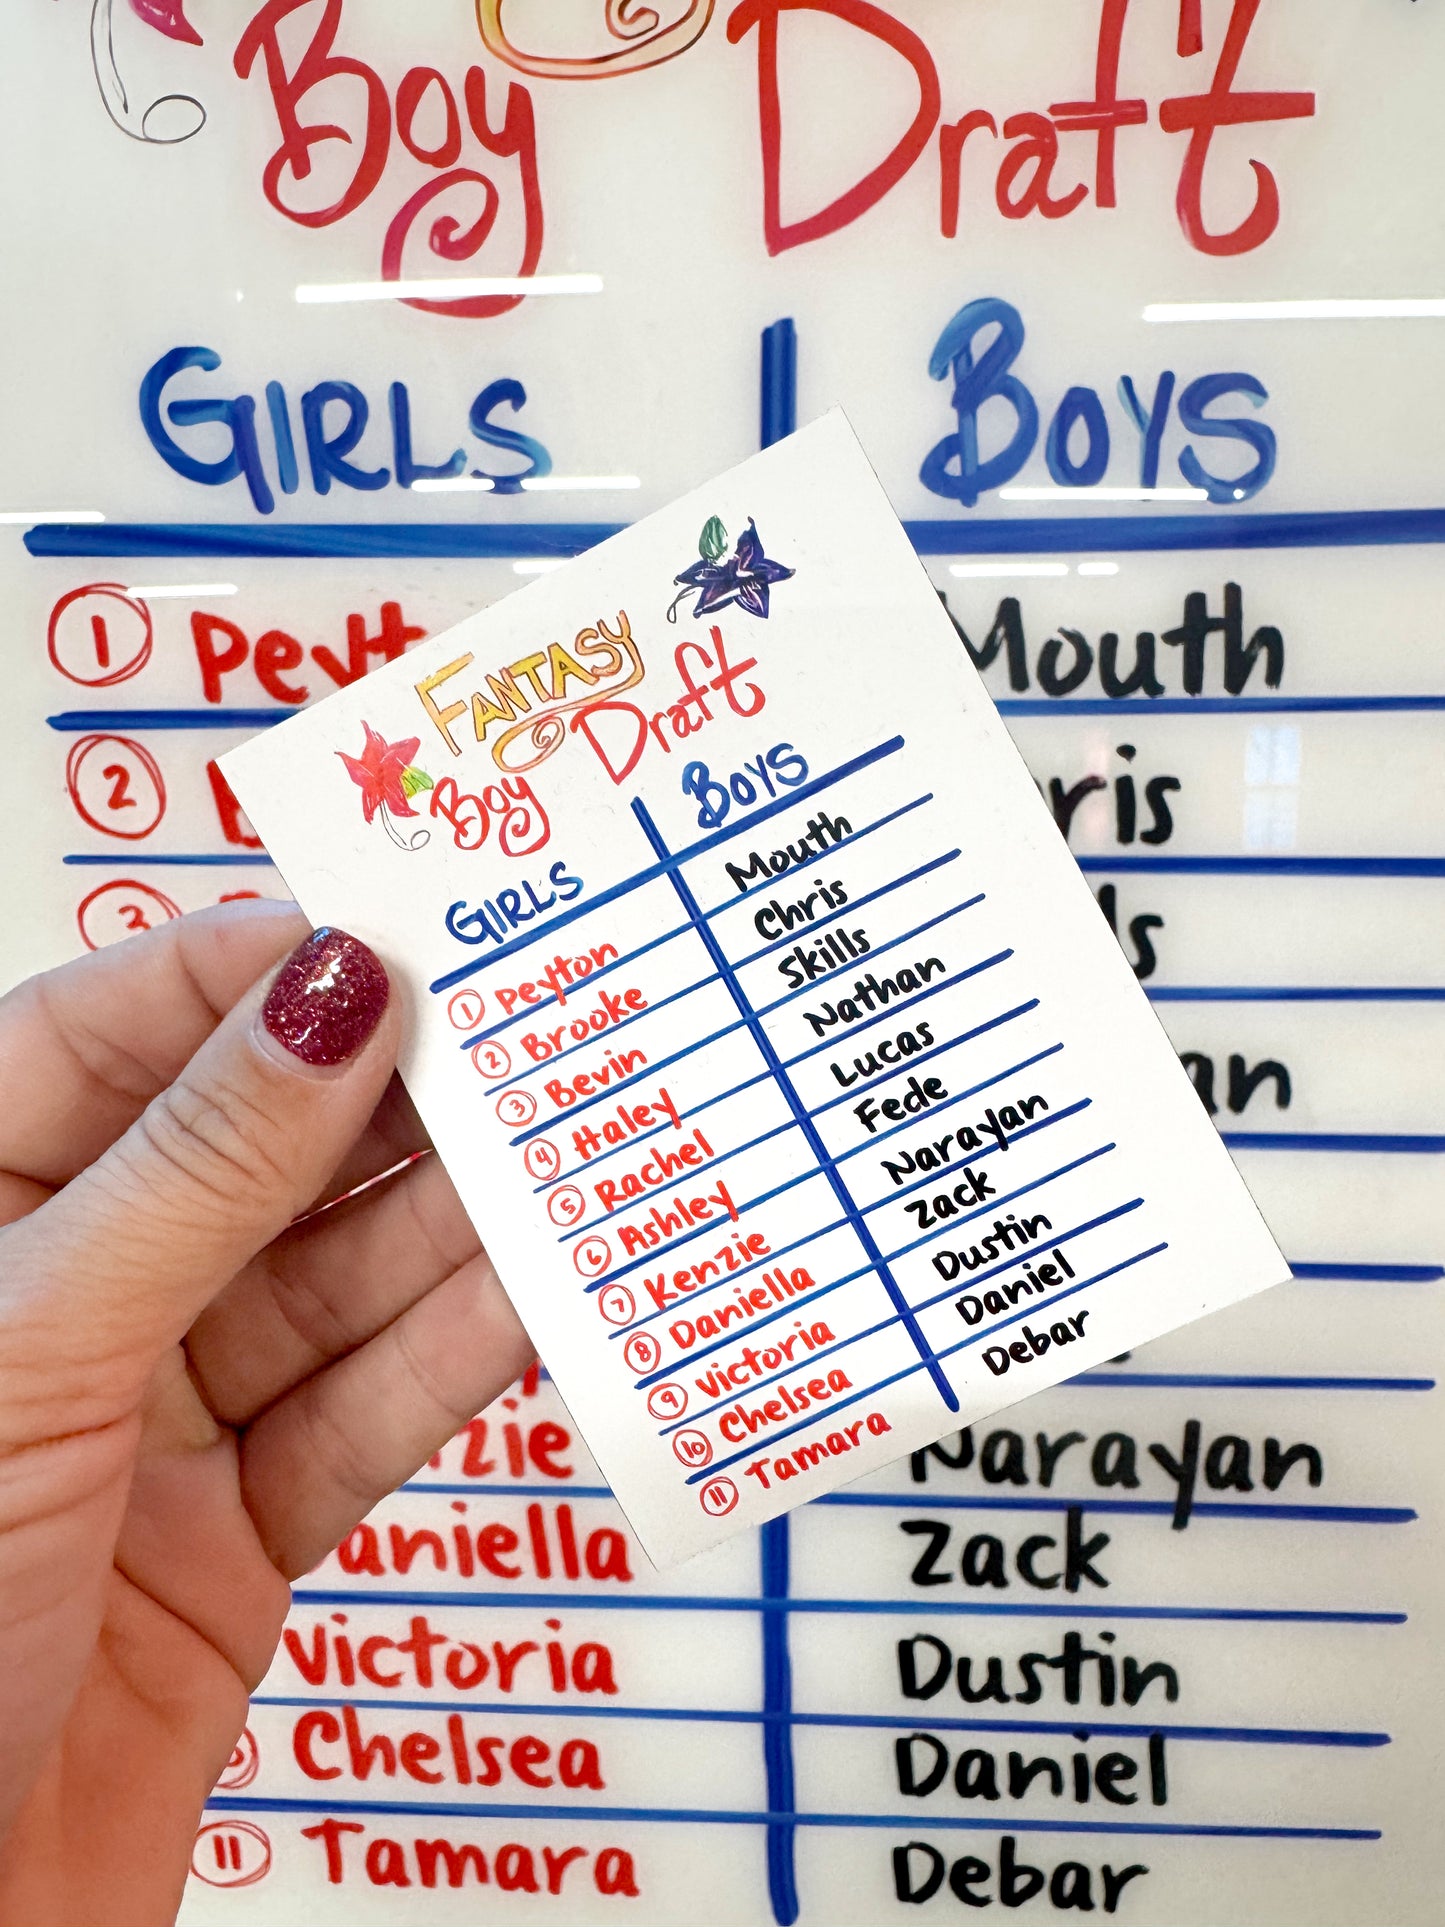 Boy Draft
GIRLS Boys
1 Peyt Mouth
2 ris
3 ls
an
FANTASY
Boy Draft
GIRLS Boys
1 Peyton Mouth
2 Brooke Chris
3 Bevin Skills
4 Haley Nathan
5 Rachel Lucas
6 Ashley Fede
7 Kenzie Narayan
8 Daniella Zack
9 Victoria Dustin
10 Chelsea Daniel
11 Tamara Debar
zie Narayan
aniella Zack
Victoria Dustin
Chelsea Daniel
11 Tamara Debar